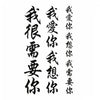 我爱你 我想你 我需要你
我爱你 我想你
我很需要你